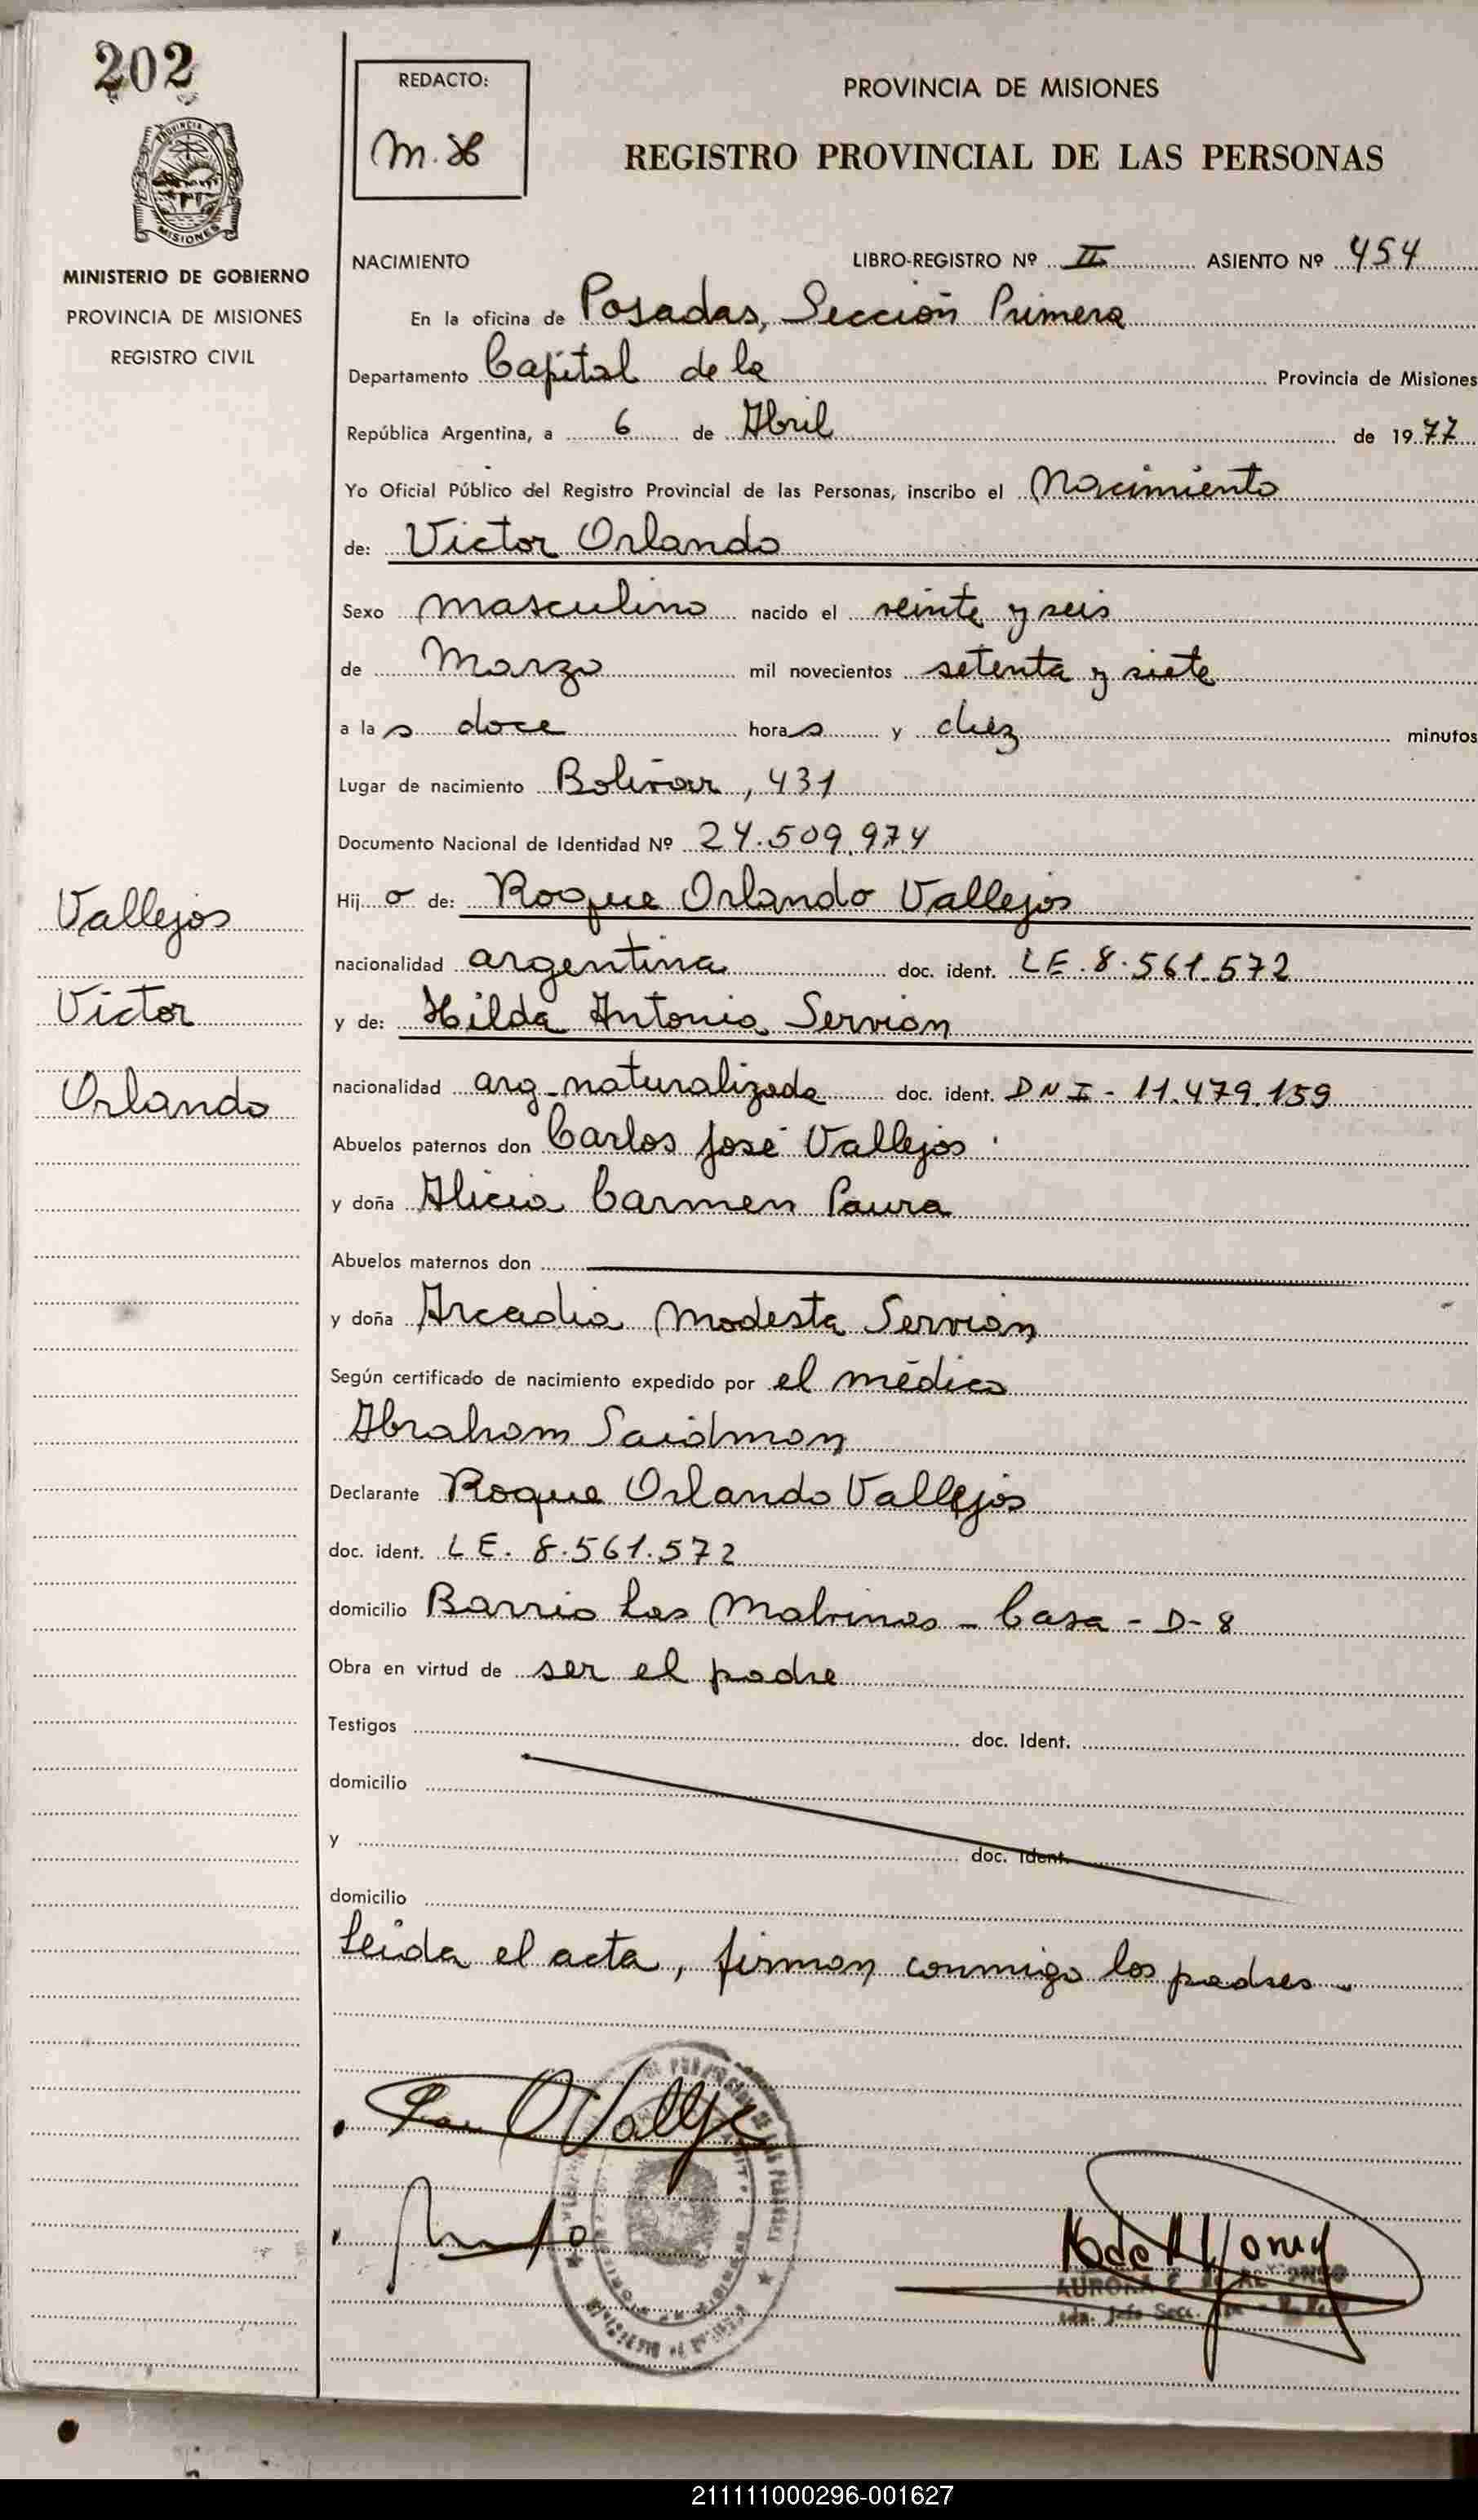 202
REDACTO:
M. H
PROVINCIA DE MISIONES
REGISTRO PROVINCIAL DE LAS PERSONAS
PROVINCIA DE
MISIONES
MINISTERIO DE GOBIERNO
PROVINCIA DE MISIONES
REGISTRO CIVIL
NACIMIENTO LIBRO-REGISTRO Nº II ASIENTO Nº 454
En la oficina de Posadas, Sección Primera
Departamento Capital de la Provincia de Misiones
República Argentina, a 6 de Abril de 1977
Yo Oficial Público del Registro Provincial de las Personas, inscribo el Nacimiento
de: Victor Orlando
Sexo masculino nacido el veinte y seis
de Marzo mil novecientos setenta y siete
a la s doce hora s y diez minutos
Lugar de nacimiento Bolivar, 431
Documento Nacional de Identidad Nº 24.509.974
Hij o de: Roque Orlando Vallejos
nacionalidad argentina doc. ident. LE. 8.561.572
y de: Hilda Antonia Servian
nacionalidad arg. naturalizada doc. ident. DNI - 11.479.159
Abuelos paternos don Carlos José Vallejos
y doña Alicia Carmen Paura
Abuelos maternos don
y doña Arcadia Modesta Servián
Según certificado de nacimiento expedido por el médico
Abraham Saidman
Declarante Roque Orlando Vallejos
doc. ident. LE. 8.561.572
domicilio Barrio Las Malvinas - Casa - D-8
Obra en virtud de ser el padre
Testigos doc. Ident.
domicilio
y doc. Ident.
domicilio
Leida el acta, firman conmigo los padres.
Vallejos
Victor
Orlando
AURORA
211111000296-001627